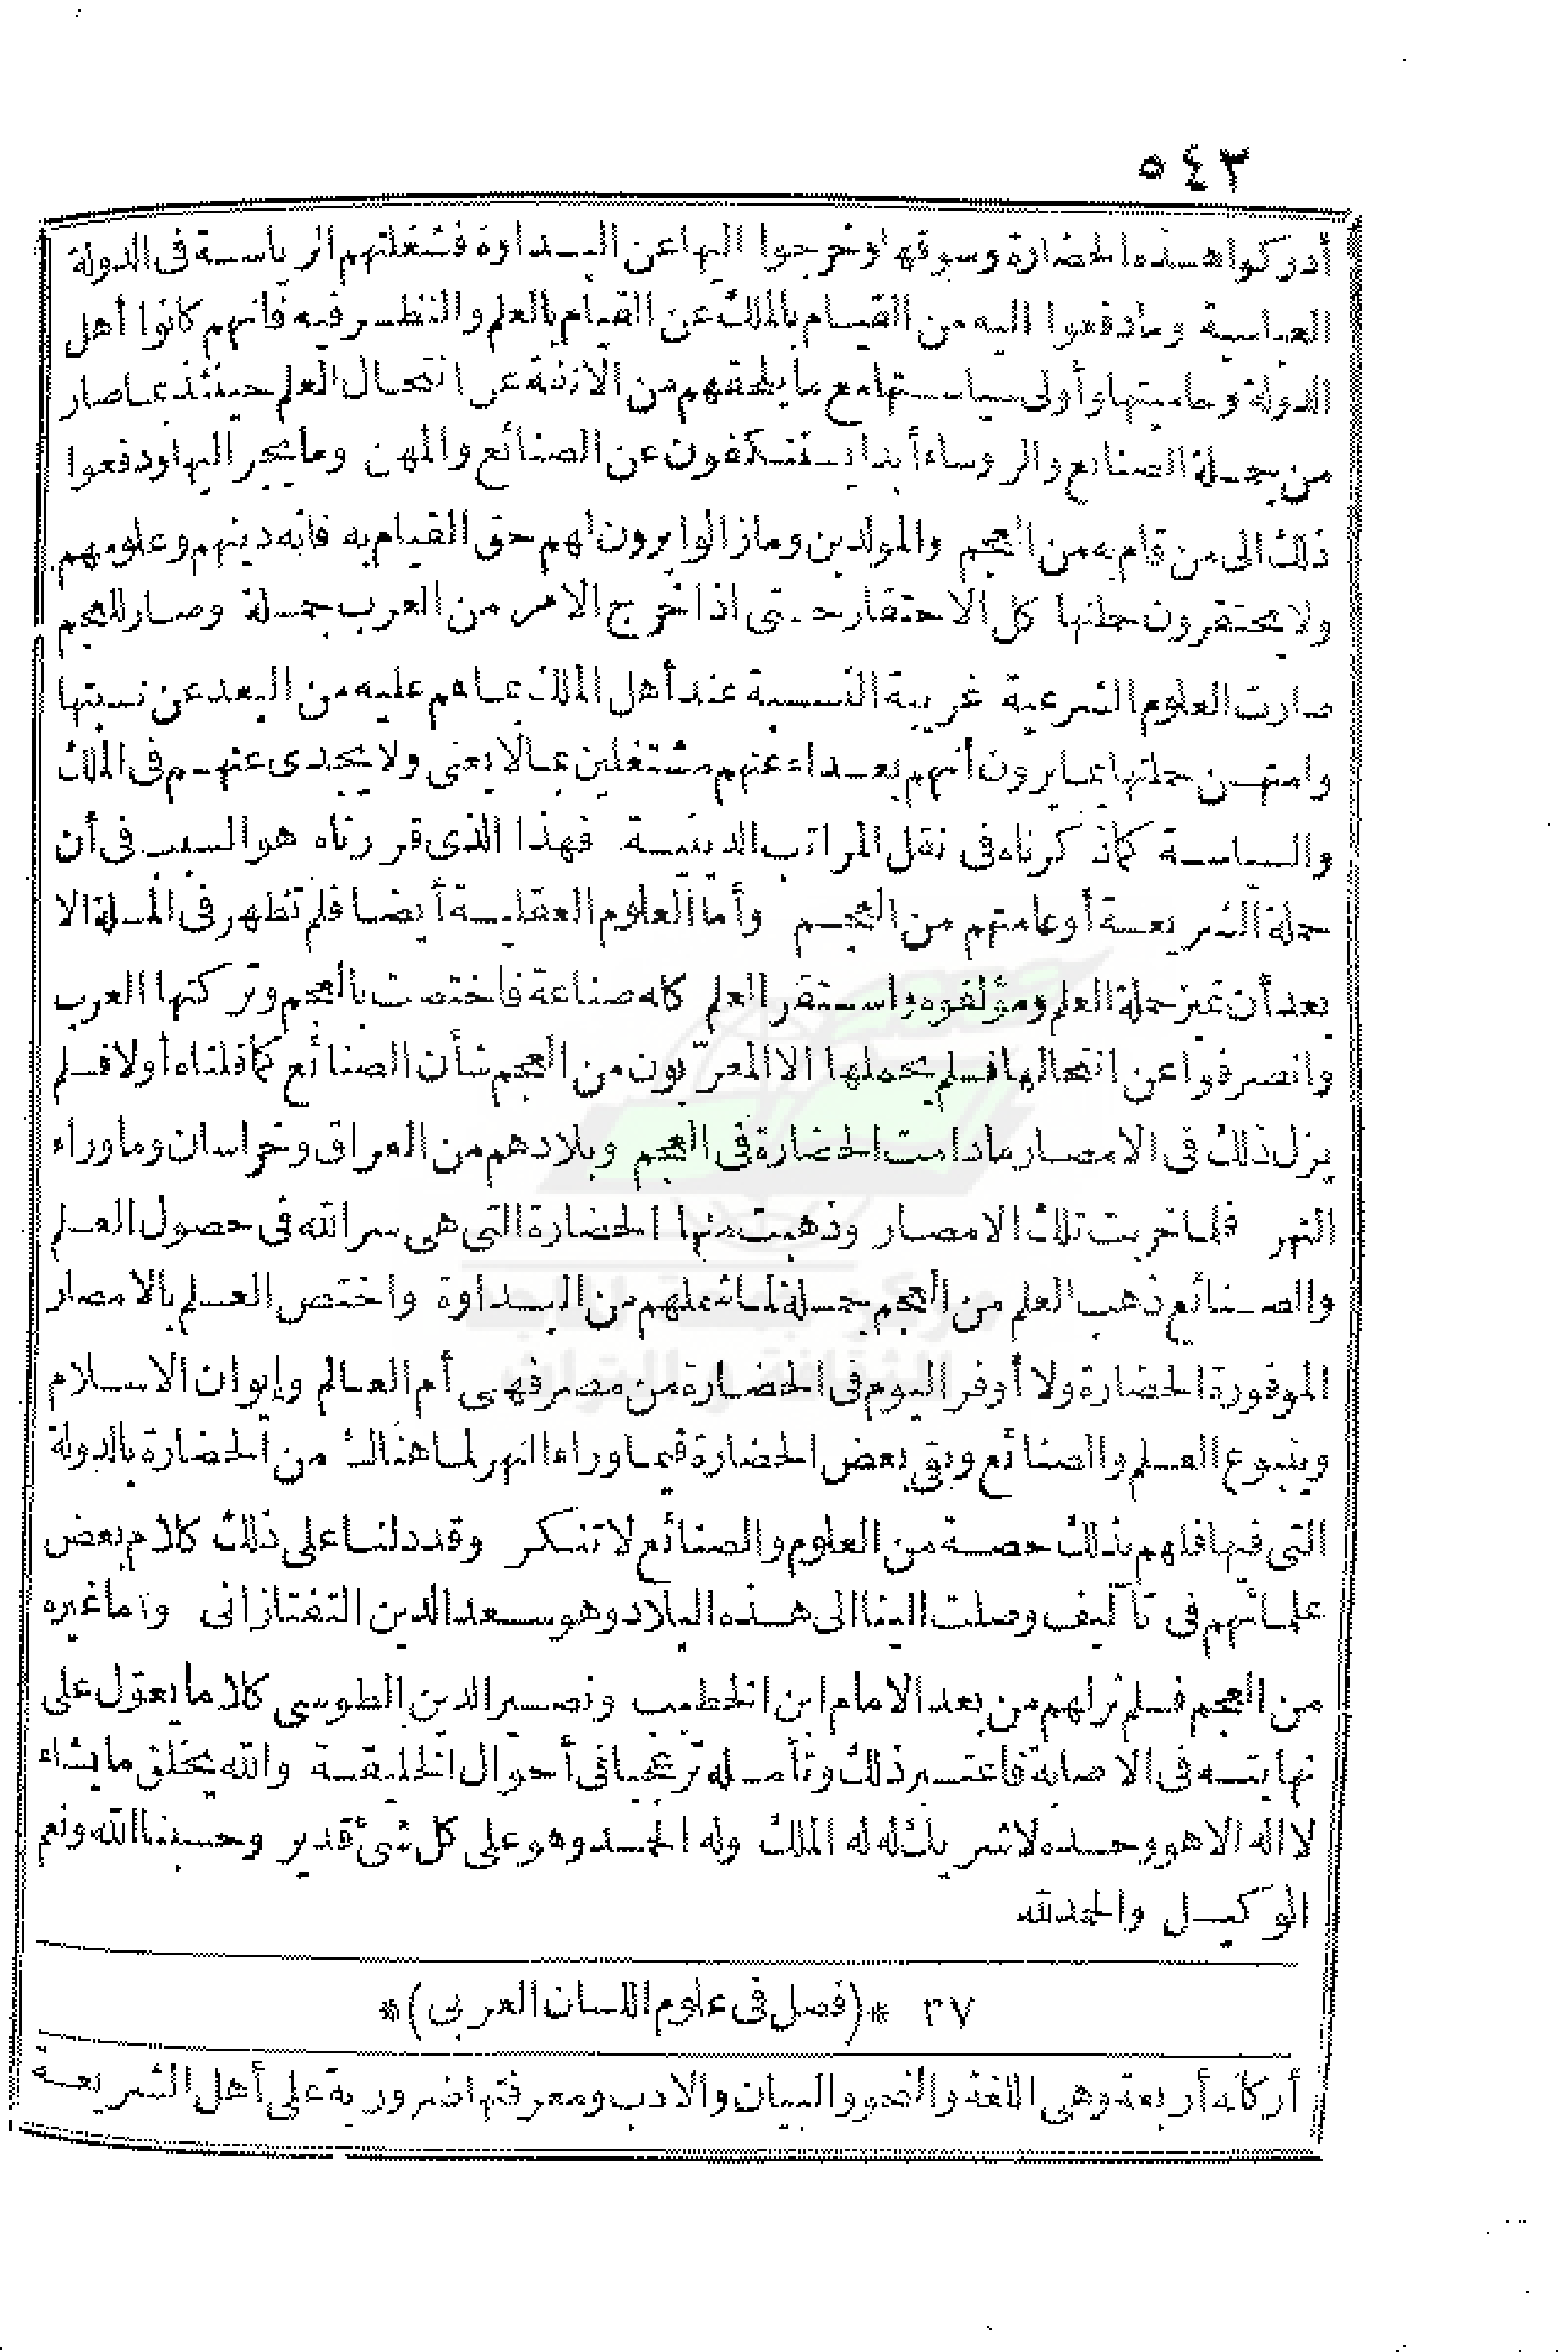 ٥٤٣
أدركوا هذه الحضارة وسوقها وخرجوا اليها عن البداوة فشغلتهم الرياسة فى الدولة
العباسية وما دفعوا اليه من القيام بالملك عن القيام بالعلم والنظر فيه فانهم كانوا أهل
الدولة وحاميتها وأولى سياستها مع ما يلحقهم من الانفة عن انتحال العلم حينئذ بما صار
من جملة الصنائع والرؤساء أبدا يستنكفون عن الصنائع والمهن وما يجر اليها ودفعوا
ذلك الى من قام به من العجم والمولدين وما زالوا يرون لهم حق القيام به فانه دينهم وعلومهم
ولا يحتقرون حملتها كل الاحتقار حتى اذا خرج الامر من العرب جملة وصار للعجم
صارت العلوم الشرعية غريبة النسبة عند أهل الملك بما هم عليه من البعد عن نسبتها
وامتهن حملتها بما يرون أنهم بعداء عنهم مشتغلين بما لا يعنى ولا يجدى عنهم فى الملك
والسياسة كما ذكرناه فى نقل المراتب الدينية فهذا الذى قررناه هو السبب فى أن
حملة الشريعة أو عامتهم من العجم وأما العلوم العقلية أيضا فلم تظهر فى الملة الا
بعد أن تميز حملة العلم ومؤلفوه واستقر العلم كله صناعة فاختصت بالعجم وتركتها العرب
وانصرفوا عن انتحالها فلم يحملها الا المعرّبون من العجم شأن الصنائع كما قلناه أولا فلم
يزل ذلك فى الامصار ما دامت الحضارة فى العجم وبلادهم من العراق وخراسان وما وراء
النهر فلما خربت تلك الامصار وذهبت منها الحضارة التى هى سر الله فى حصول العلم
والصنائع ذهب العلم من العجم جملة لما شملهم من البداوة واختص العلم بالامصار
الموفورة الحضارة ولا أوفر اليوم فى الحضارة من مصر فهى أم العالم وايوان الاسلام
وينبوع العلم والصنائع وبقى بعض الحضارة فيما وراء النهر لما هناك من الحضارة بالدولة
التى فيها فلهم بذلك حصة من العلوم والصنائع لا تنكر وقد دلنا على ذلك كلام بعض
علمائهم فى تآليف وصلت الينا الى هذه البلاد وهو سعد الدين التفتازانى وأما غيره
من العجم فلم نر لهم من بعد الامام ابن الخطيب ونصير الدين الطوسى كلاما يعوّل على
نهايته فى الاصابة فاعتبر ذلك وتأمله تر عجبا فى أحوال الخليقة والله يخلق ما يشاء
لا اله الا هو وحده لا شريك له له الملك وله الحمد وهو على كل شئ قدير وحسبنا الله ونعم
الوكيل والحمد لله
٣٧ *(فصل فى علوم اللسان العربى)*
أركانه أربعة وهى اللغة والنحو والبيان والادب ومعرفتها ضرورية على أهل الشريعة
مركز جمعة الماجد
للثقافة والتراث